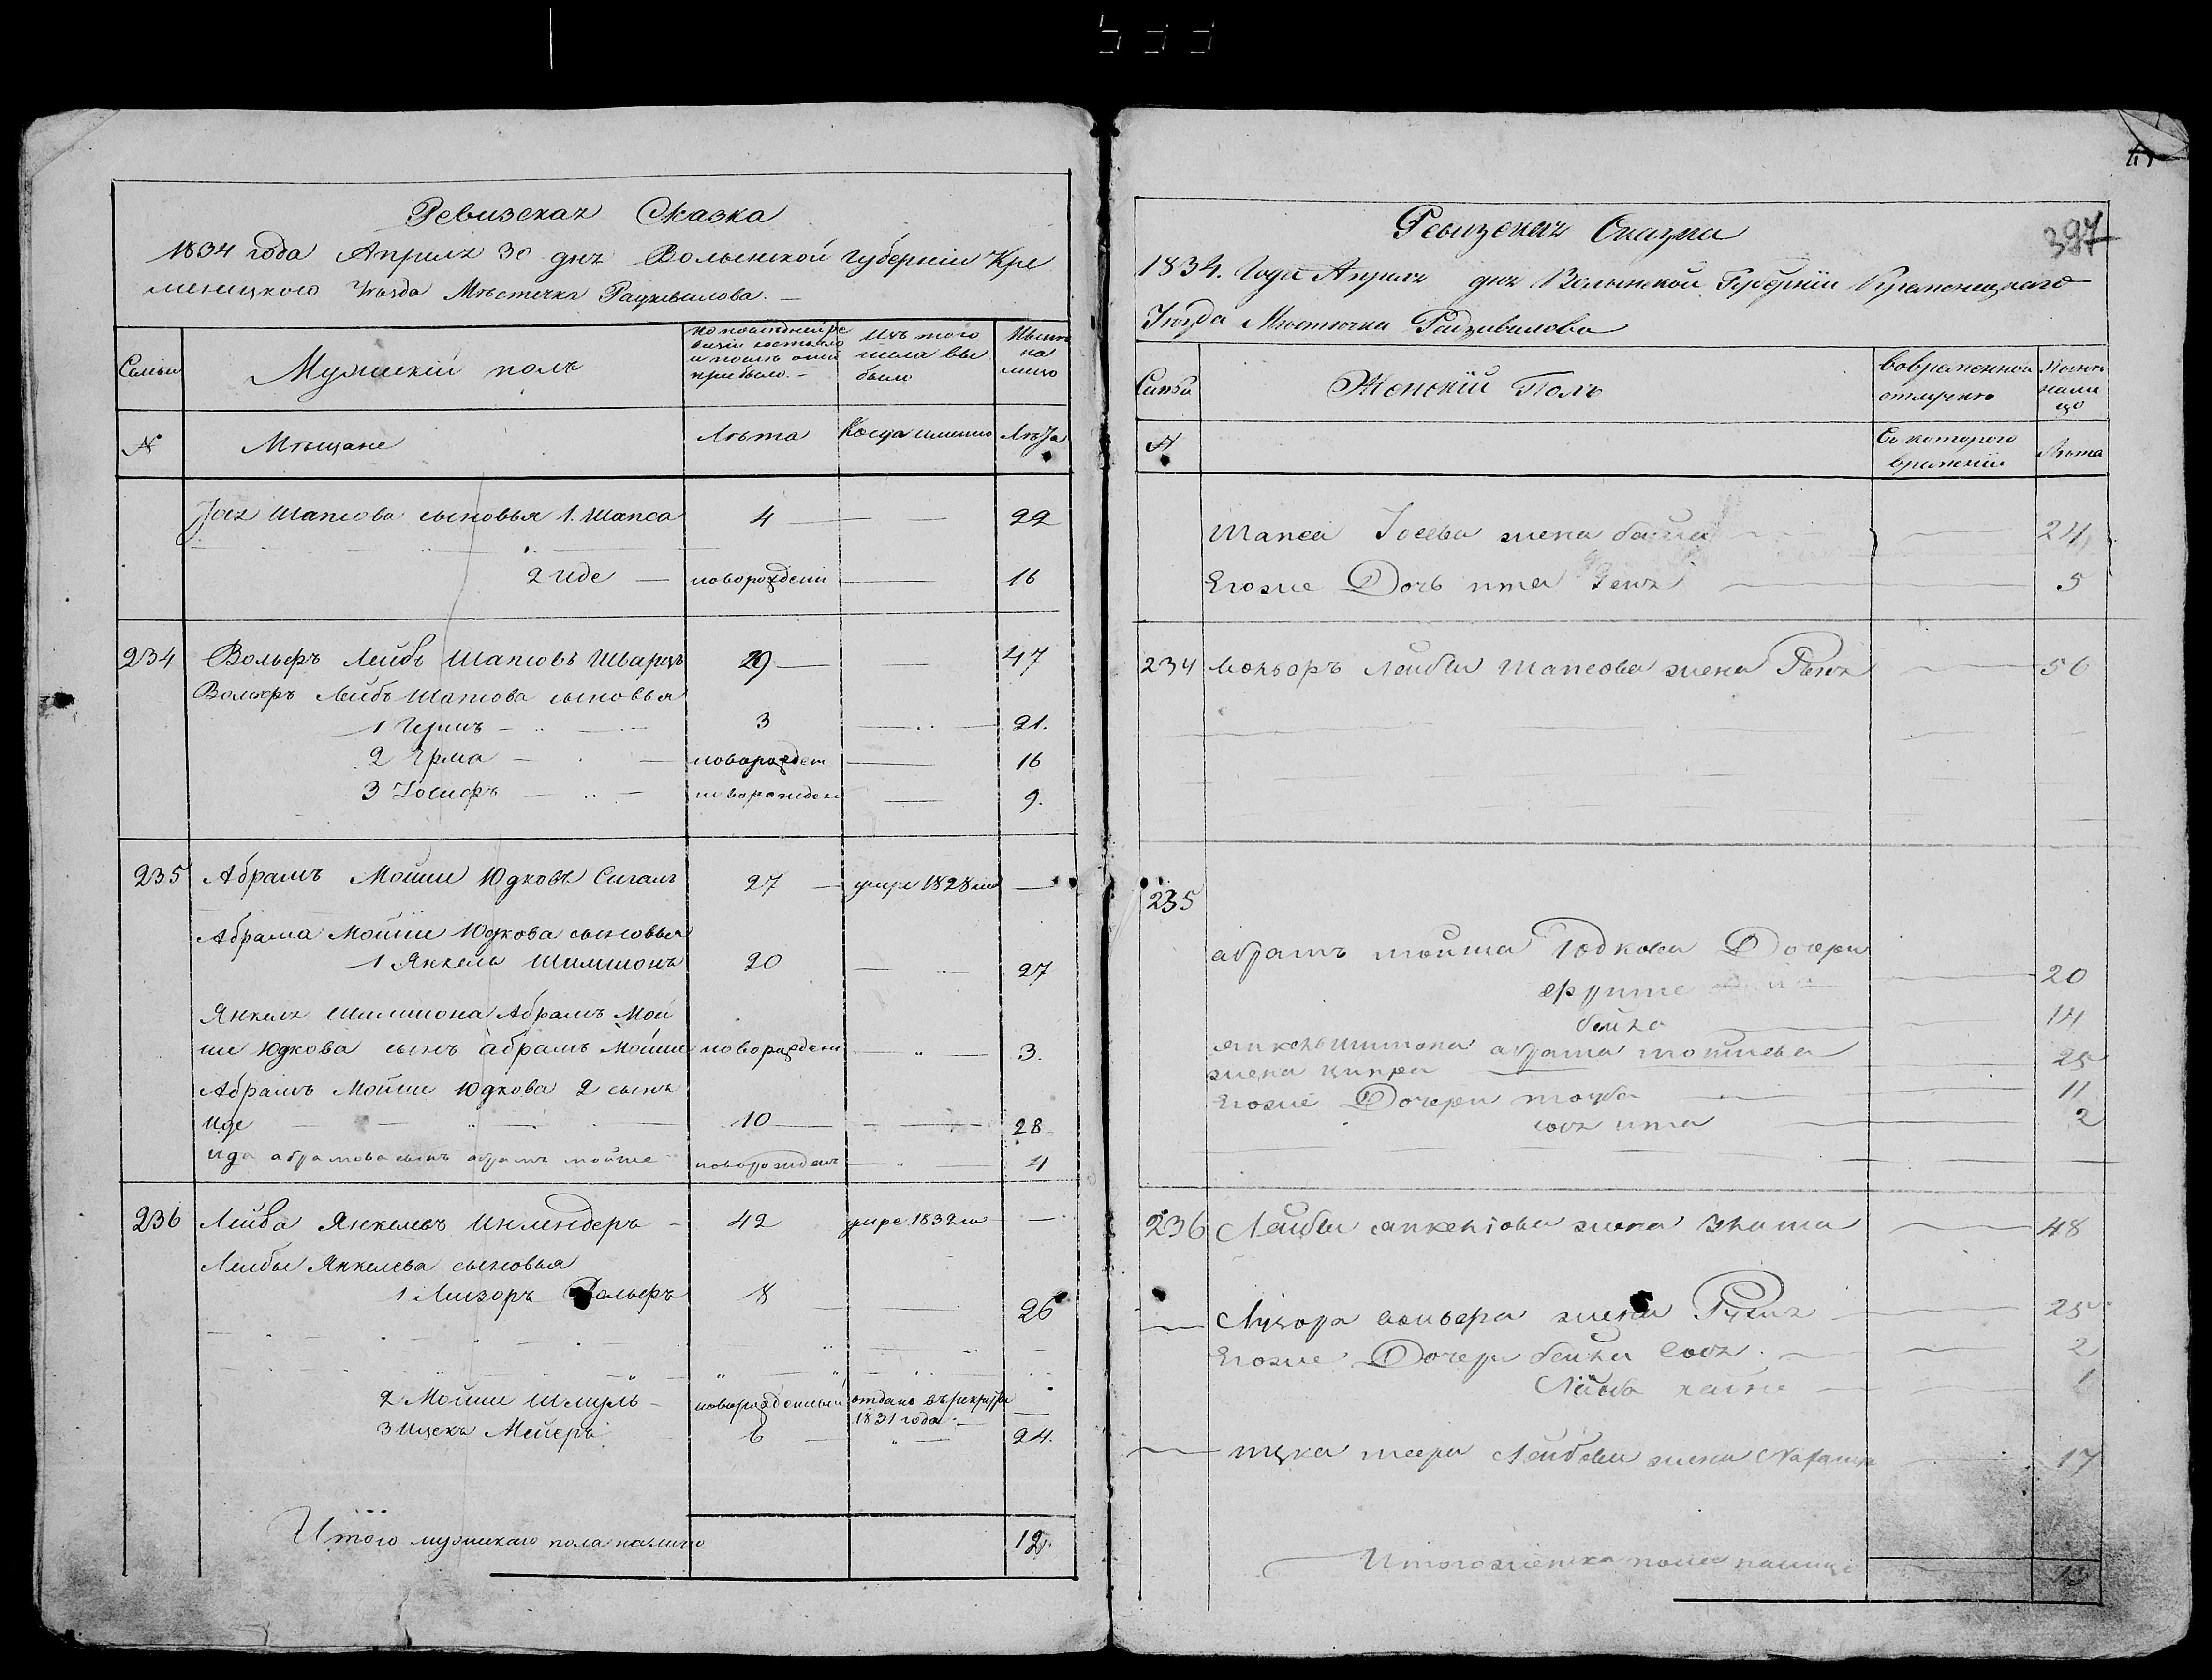 Ревизская Сказка
1834 года Апреля 30 дня Волынской Губерніи Кре
менецкого Уѣзда Мѣстечка Радзивилова.
Семьи
Мужескій полъ
по последней ре
визіи состояло
и послѣ оной
прибыло.
Изъ того
числа вы
было
Нынѣ
на
лицо
№
Мѣщане
Лѣта
Когда именно
Лѣта
Іося Шапсова сыновья 1. Шапса 4 22
2 Иде новорожденн 16
234 Вольфъ Лейбъ Шапсовъ Шварцъ 29 47
Вольфъ Лейбъ Шапсова сыновья
1 Гершъ 3 21.
2 Ерма новорожден 16
3 Іосифъ новорожден 9.
235 Абрамъ Мошш Юдковъ Сигалъ 27 умре 1828го
Абрама Мойши Юдкова сыновья
1 Янкель Шимшонъ 20 27
Янкеля Шимшона Абрамъ Мой
ши Юдкова сынъ абрамъ Мойше новорожденн 3.
Абрамъ Мойши Юдкова 2 сынъ
Иде 10 28
ида абрамова сынъ абрамъ мойше новорожденъ 4
236 Лейба Янкелевъ Инлендеръ 42 умре 1832го
Лейбы Янкелева сыновья
1 Лизоръ Вольфъ 8 26
2 Мойши Шмуль новорожденный отданъ въ рекруты
1831 года
3 Ицекъ Мейеръ 6 24.
Итого мужескаго пола налицо 12.
397
Ревизская Сказка
1834. Года Апреля дня Волынской Губерніи Кременецкаго
Уѣзда Мѣстечка Радзивилова
Семьи
Женскій Полъ
вовременной
отлучкѣ
Нынѣ
нали
цо
№
Со которого
времени
Лѣта
Шапса Іосева жена 24
Егоже Дочь ита 5
234 Лейбы Шапсова жена 50
235
абрамъ мойша Юдкова Дочери
20
бейла 14
янкель шимшона абрама мойшева
жена ципра 25
Егоже Дочери тауба 11
сося ита 2
236 Лейбы янкелова жена злата 48
Лузора вольфа жена 25
Егоже Дочери бейла сося 2
1
ицка меера Лейбова жена 17
Итого женска пола налицо 13